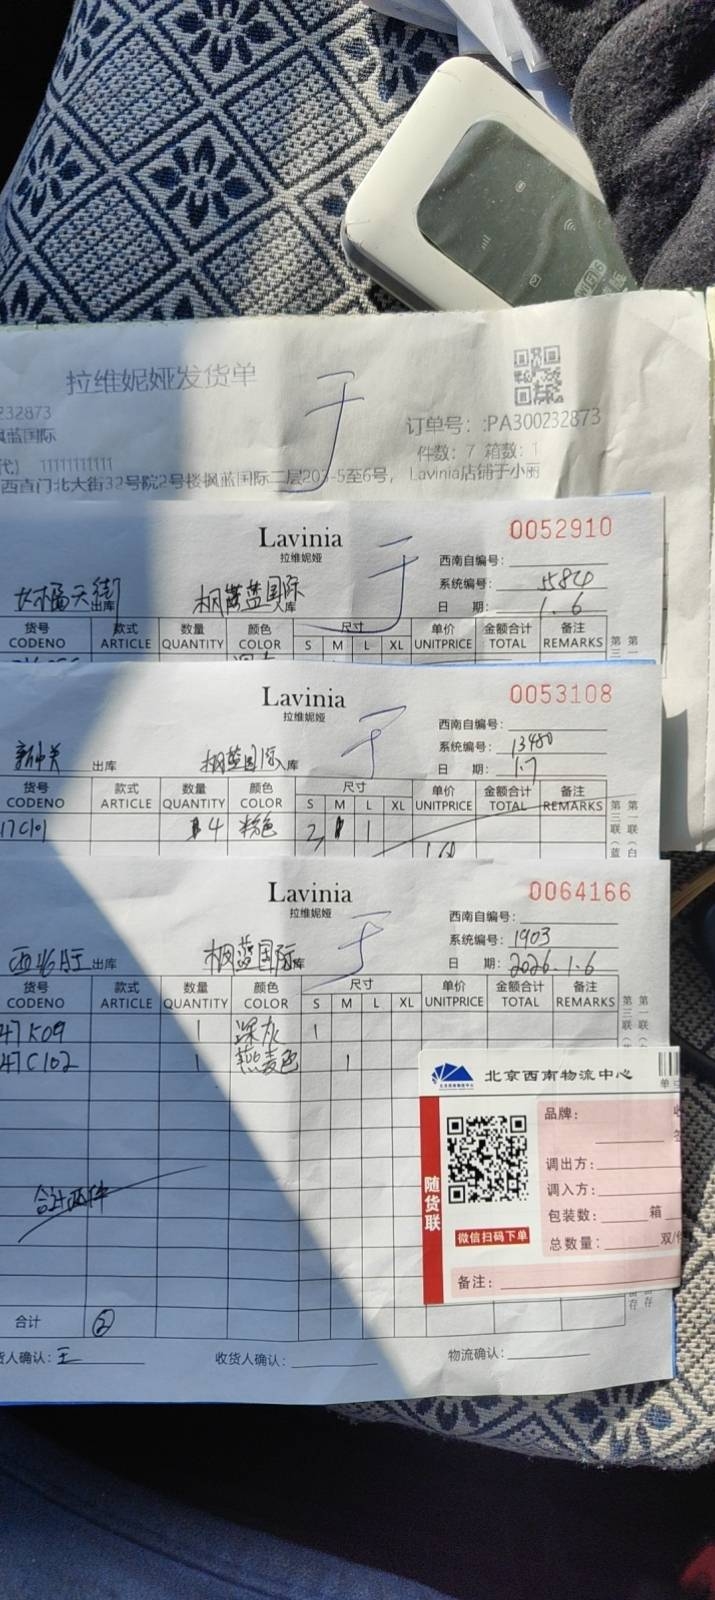 拉维妮娅发货单
于
232873
订单号：:PA300232873
枫蓝国际
件数：7 箱数：1
代） 11111111111
西直门北大街32号院2号楼枫蓝国际二层203-5至6号， Lavinia店铺于小丽
Lavinia
拉维妮娅
于
0052910
西南自编号：
系统编号：5584
日 期：1.6
天街 出库
枫蓝国际 库
货号 款式 数量 颜色 尺寸 单价 金额合计 备注
CODENO ARTICLE QUANTITY COLOR S M L XL UNITPRICE TOTAL REMARKS
Lavinia
拉维妮娅
于
0053108
西南自编号：
系统编号：13480
日 期：1.7
新中关 出库
枫蓝国际 库
货号 款式 数量 颜色 尺寸 单价 金额合计 备注
CODENO ARTICLE QUANTITY COLOR S M L XL UNITPRICE TOTAL REMARKS
17C101 4 粉色 2 1 1
Lavinia
拉维妮娅
于
0064166
西南自编号：
系统编号：1903
日 期：2026.1.6
出库
枫蓝国际 库
货号 款式 数量 颜色 尺寸 单价 金额合计 备注
CODENO ARTICLE QUANTITY COLOR S M L XL UNITPRICE TOTAL REMARKS
47K09 1 深灰 1
47C102 1 燕麦色 1
合计两件
合计 ②
货人确认：王
收货人确认：
物流确认：
北京西南物流中心
随货联
微信扫码下单
品牌：
调出方：
调入方：
包装数： 箱
总数量： 双/件
备注：